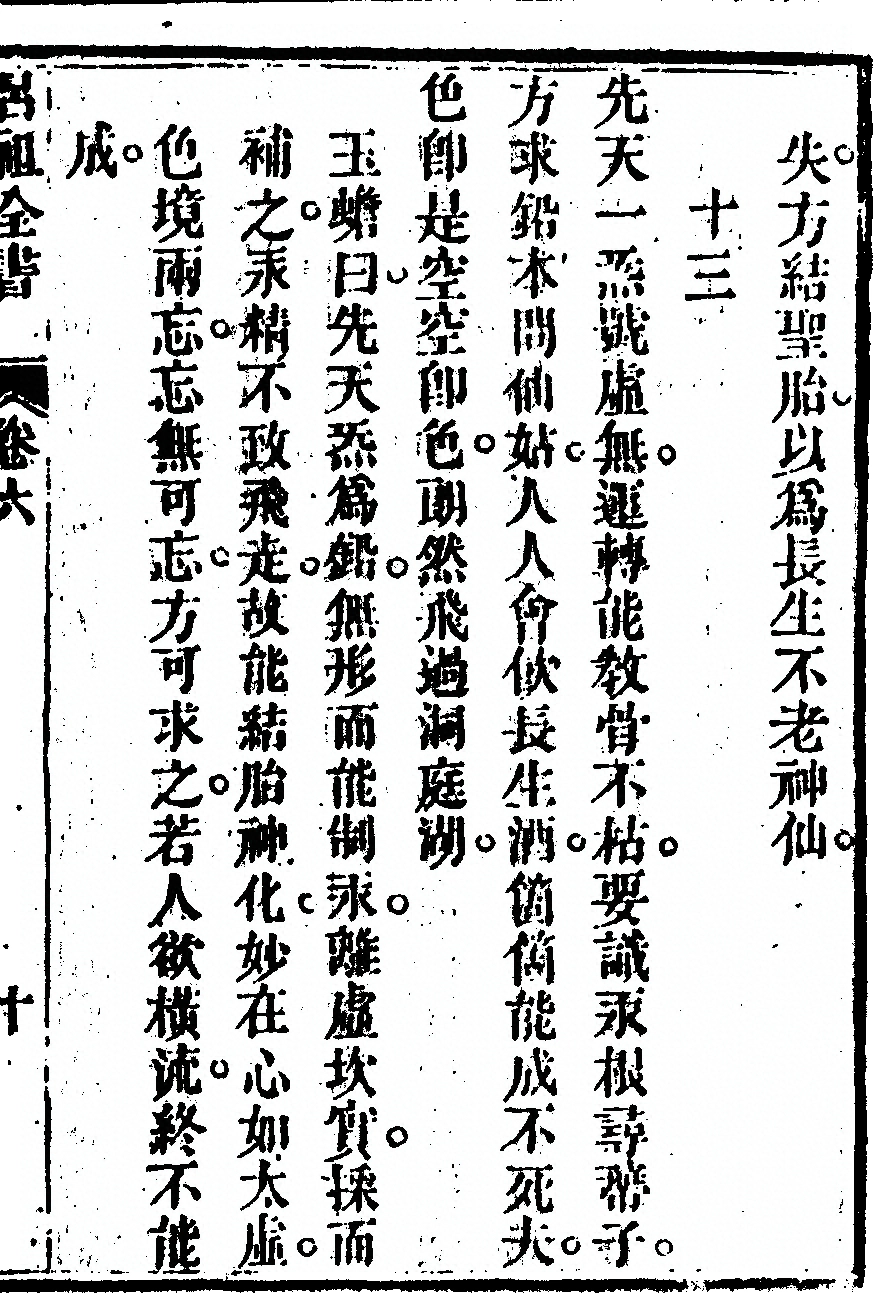 失方結聖胎以爲長生不老神仙
十三
先天一炁號虛無運轉能教骨不枯要識汞根尋蒂子
方求鉛本問仙姑人人會飲長生酒箇箇能成不死夫
色卽是空空卽色朗然飛過洞庭湖
玉蟾曰先天炁爲鉛無形而能制汞離虛坎實採而
補之汞精不致飛走故能結胎神化妙在心如太虛
色境兩忘忘無可忘方可求之若人欲橫流終不能
成
呂祖全書 卷六 十